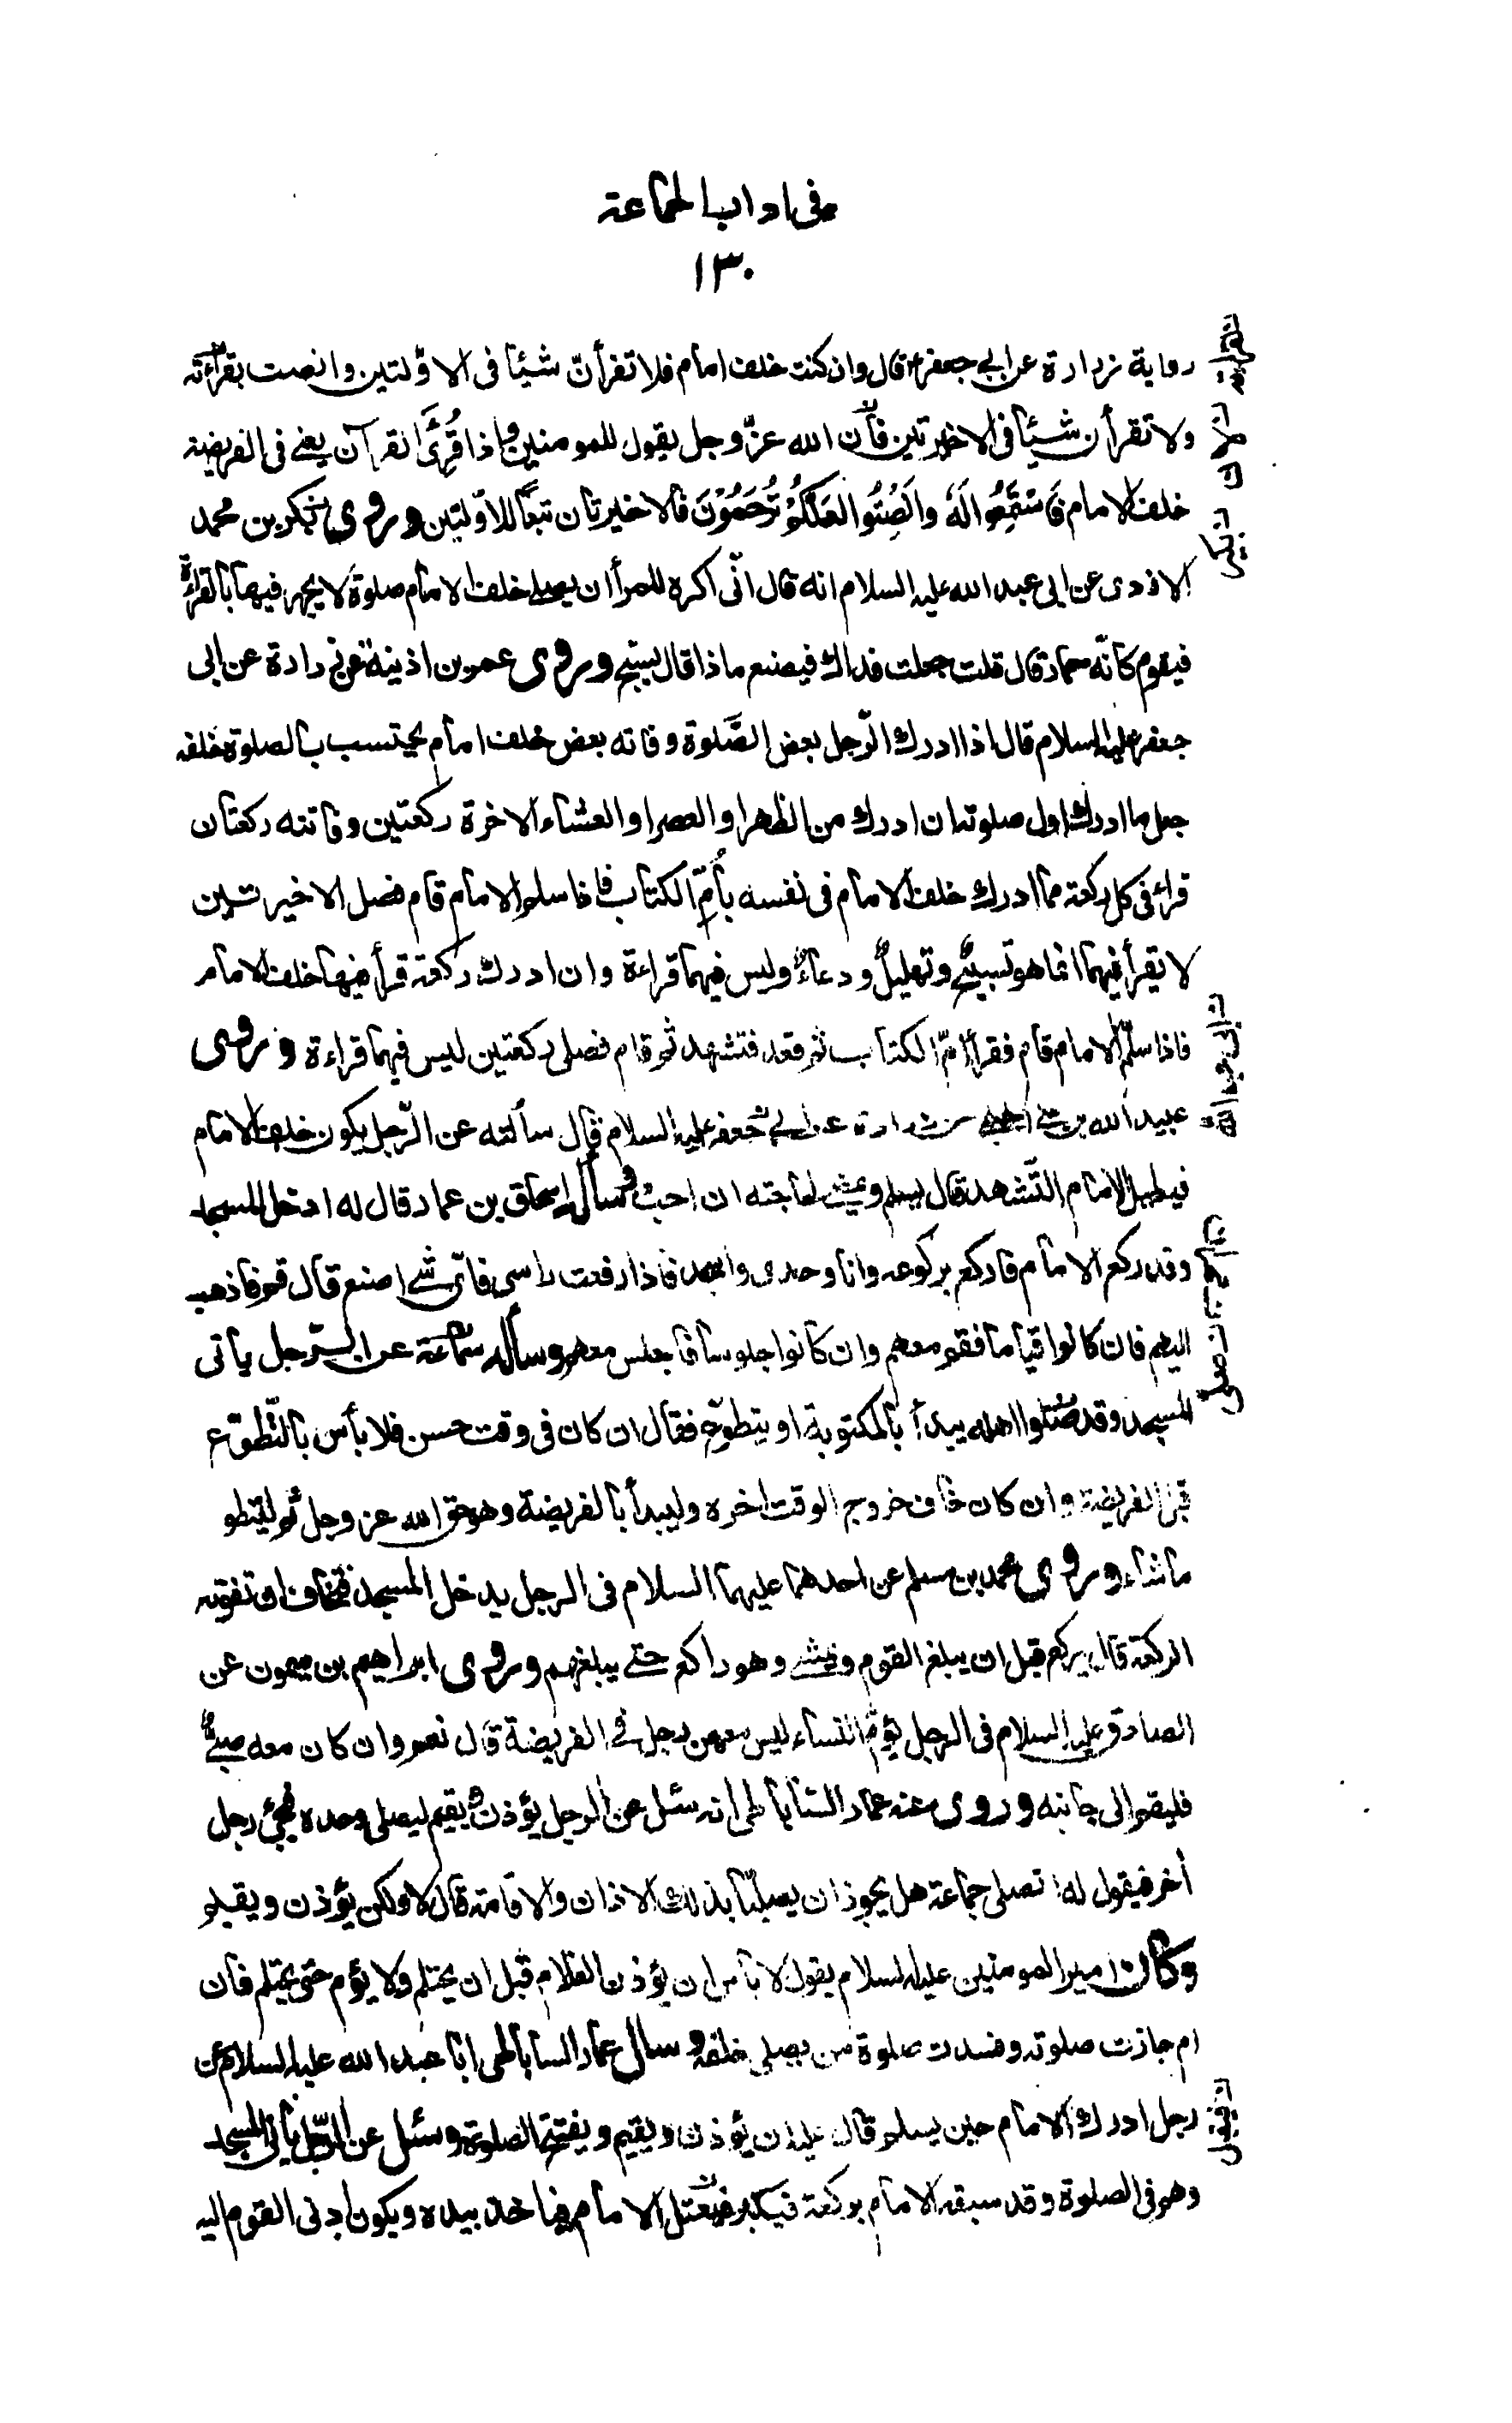 فى اداب الجماعة
١٣٠
رواية زرارة عن ابى جعفر ع قال وان كنت خلف امام فلا تقرأنّ شيئا فى الاوّلتين وانصت بقراءته
ولا تقرأن شيئا فى الاخيرتين فانّ الله عزّ وجل يقول للمومنين واذا قُرِئَ القرآن يعنى فى الفريضة
خلف الامام فَاسْتَمِعُوا لَهُ وَاَنْصِتُوا لَعَلَّكُمْ تُرْحَمُوْنَ فالاخيرتان تبعاً للاوّلتين وروى بكر بن محمد
الازدى عن ابى عبد الله عليه السلام انه قال انّى اكره للمرأ ان يصلى خلف الامام صلوة لا يجهر فيها بالقراءة
فيقوم كانّه حمار قال قلت جعلت فداك فيصنع ماذا قال يسبح وروى عمر بن اذينة عن زرارة عن ابى
جعفر عليه السلام قال اذا ادرك الرّجل بعض الصَّلوة وفاته بعض خلف امام يحتسب بالصلوة خلفه
جعل ما ادرك اول صلوته ان ادرك من الظهر او العصر او العشاء الاخرة ركعتين وفاتته ركعتان
قرا فى كل ركعة مما ادرك خلف الامام فى نفسه بأُمِّ الكتاب فاذا سلم الامام قام فصل الاخيرتين
لا يقرأ فيهما انما هو تسبيحٌ وتهليلٌ ودعاءٌ وليس فيهما قراءة وان ادرك ركعة قرأ فيها خلف الامام
فاذا سلّم الامام قام فقرأ امّ الكتاب ثم قعد فتشهد ثم قام فصلى ركعتين ليس فيهما قراءة وروى
عبيد الله بن على الحلبى عن زرارة عن ابى جعفر عليه السلام قال سألته عن الرّجل يكون خلف الامام
فيطيل الامام التّشهد قال يسلم ويمضى لحاجته ان احبّ وسأله اسحاق بن عمار قال له ادخل المسجد
وقد ركع الامام فاركع بركوعه وانا وحدى واسجد فاذا رفعت راسى فاىّ شئ اصنع قال قم فاذهب
اليهم فان كانوا قياما فقم معهم وان كانوا جلوسا فاجلس معهم وسأله سماعة عن الرّجل يأتى
المسجد وقد صلوا اهله يبدأ بالمكتوبة او يتطوّع فقال ان كان فى وقت حسن فلا بأس بالتّطوّع
قبل الفريضة وان كان خاف خروج الوقت اخره وليبدأ بالفريضة وهو حق الله عز وجل ثم ليتطو
ما شاء وروى محمد بن مسلم عن احدهما عليهما السلام فى الرجل يدخل المسجد فيخاف ان تفوته
الركعة قال يركع قبل ان يبلغ القوم ويمشى وهو راكع حتى يبلغهم وروى ابراهيم بن ميمون عن
الصادق عليه السلام فى الرجل يؤمّ النساء ليس معهن رجل فى الفريضة قال نعم وان كان معه صبىٌّ
فليقم الى جانبه وروى عنه عمار الساباطى انه سئل عن الرجل يؤذن ويقيم ليصلى وحده فيجئ رجل
أخر فيقول له تصلى جماعة هل يجوز ان يصليا بذلك الاذان والاقامة قال لا ولكن يؤذن ويقيم
وكان امير المومنين عليه السلام يقول لا باس ان يؤذن الغلام قبل ان يحتلم ولا يؤم حتى يحتلم فان
ام جازت صلوته وفسدت صلوة من يصلى خلفه وسال عمار الساباطى ابا عبد الله عليه السلام عن
رجل ادرك الامام حين يسلم قال عليه ان يؤذن ويقيم ويفتتح الصلوة وسئل عن الرّجل يأتى المسجد
وهم فى الصلوة وقد سبقه الامام بركعة فيكبر فيعتل الامام فياخذ بيده ويكون ادنى القوم اليه